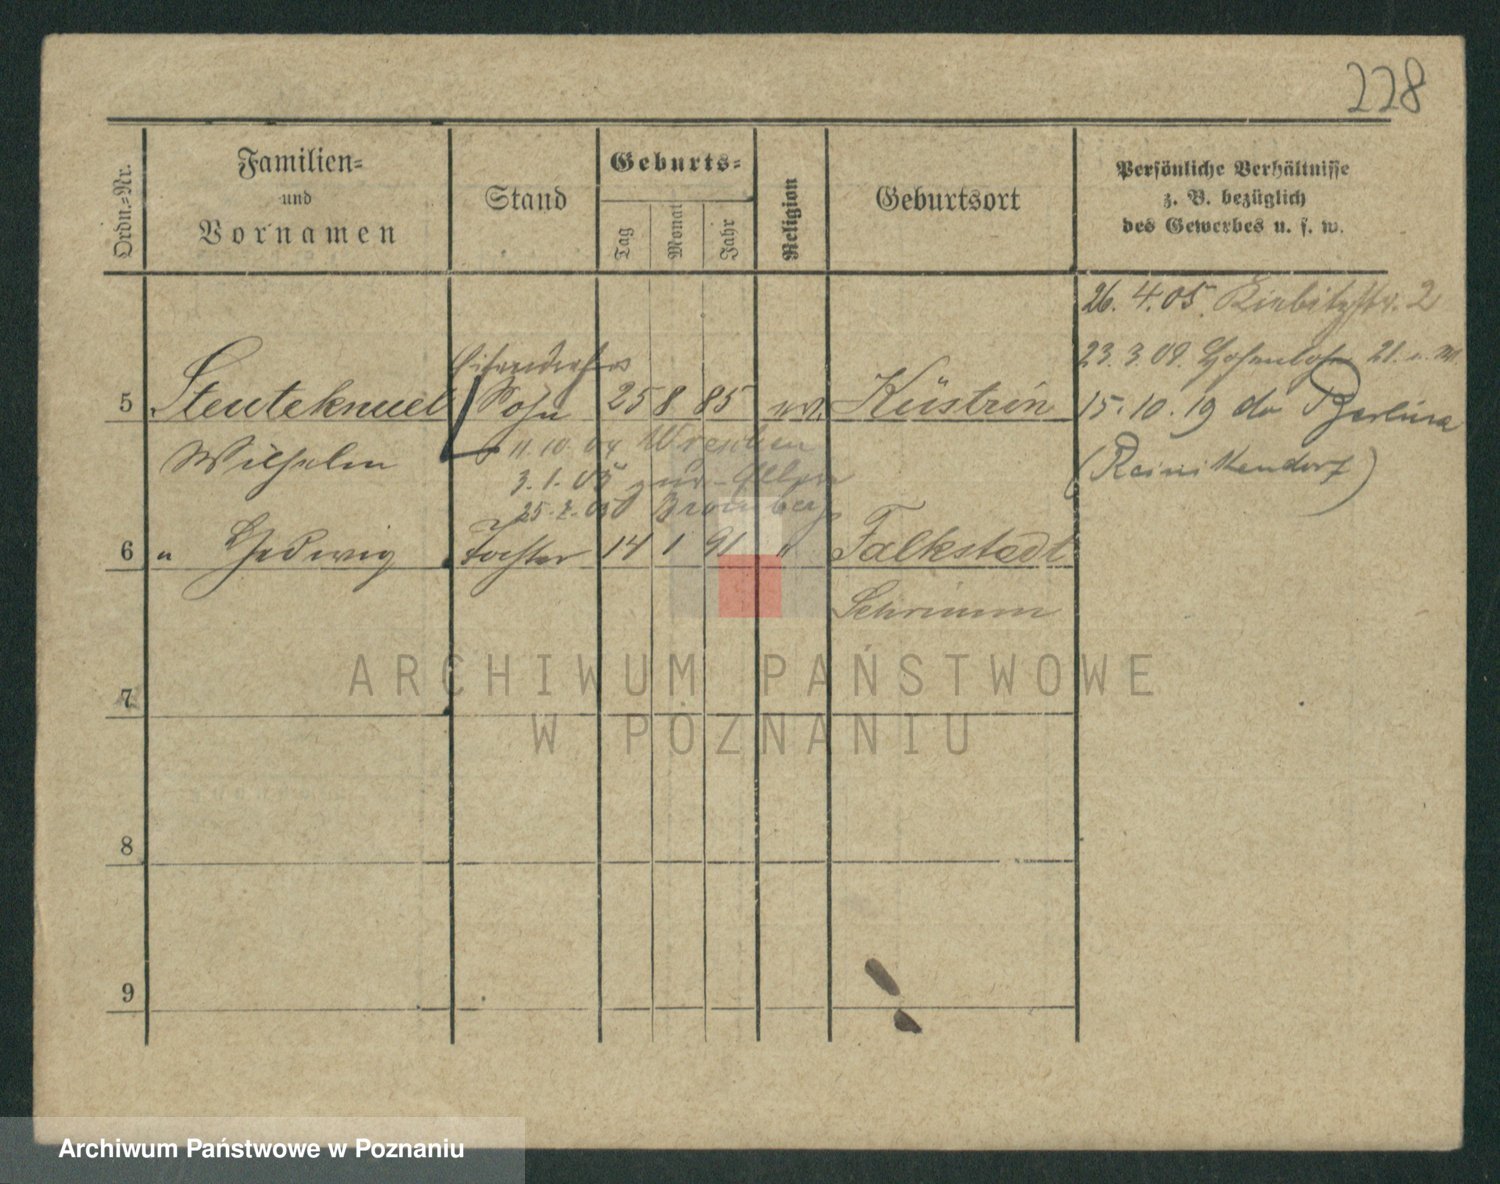 228
Ordn.-Nr.
Familien-
und
Vornamen
Stand
Geburts-
Tag
Monat
Jahr
Religion
Geburtsort
Persönliche Verhältnisse
z. B. bezüglich
des Gewerbes u. s. w.
26. 4. 05. Kiebitzstr. 2
23. 3. 09. Hohenlohe 21
5 Steuteknuel Sohn 25 8 85 ev. Küstrin
15. 10. 19 do Berlin
Wilhelm
11. 10. 04 Wreschen
(Reinikendorf)
3. 1. 05
25. 2. 05 Bromberg
6 " Hedwig Tochter 14 1 91 " Falkstadt
Schrimm
7
8
9
ARCHIWUM PAŃSTWOWE
W POZNANIU
Archiwum Państwowe w Poznaniu